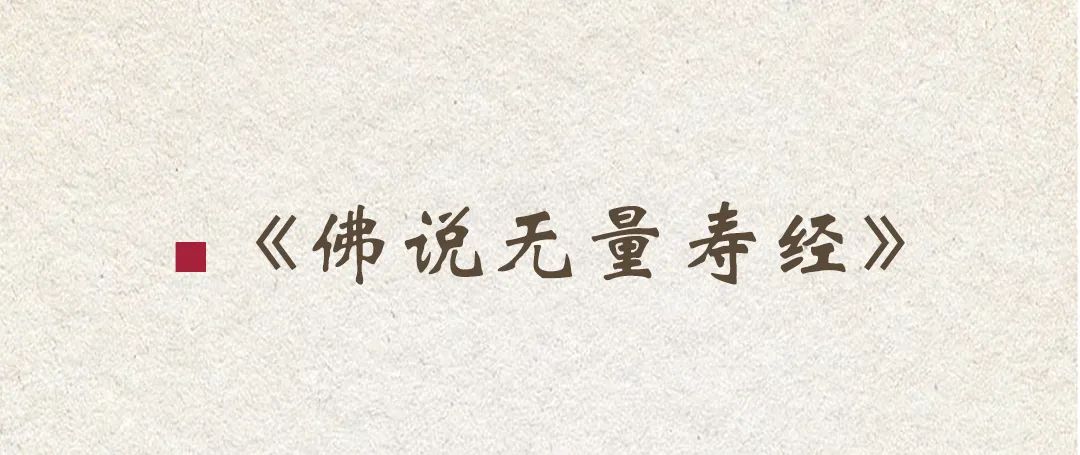 《佛说无量寿经》